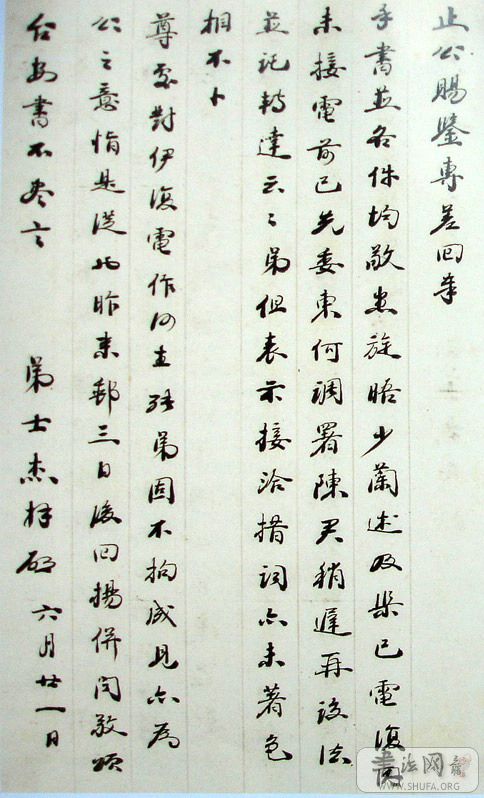 止公賜鑒專差回奉
手書並各件均敬悉旋晤少蘭述及渠已電復
未接電前已先委東何調署陳君稍遲再設法
並託轉達云云弟但表示接洽措詞亦未著色
相不卜
尊處對伊復電作何主張弟固不拘成見亦為
公之意惟是從昨來郵三日後回揚併聞敬頌
台安書不盡言 弟士杰拜啟 六月廿一日
書法网
WWW.SHUFA.ORG